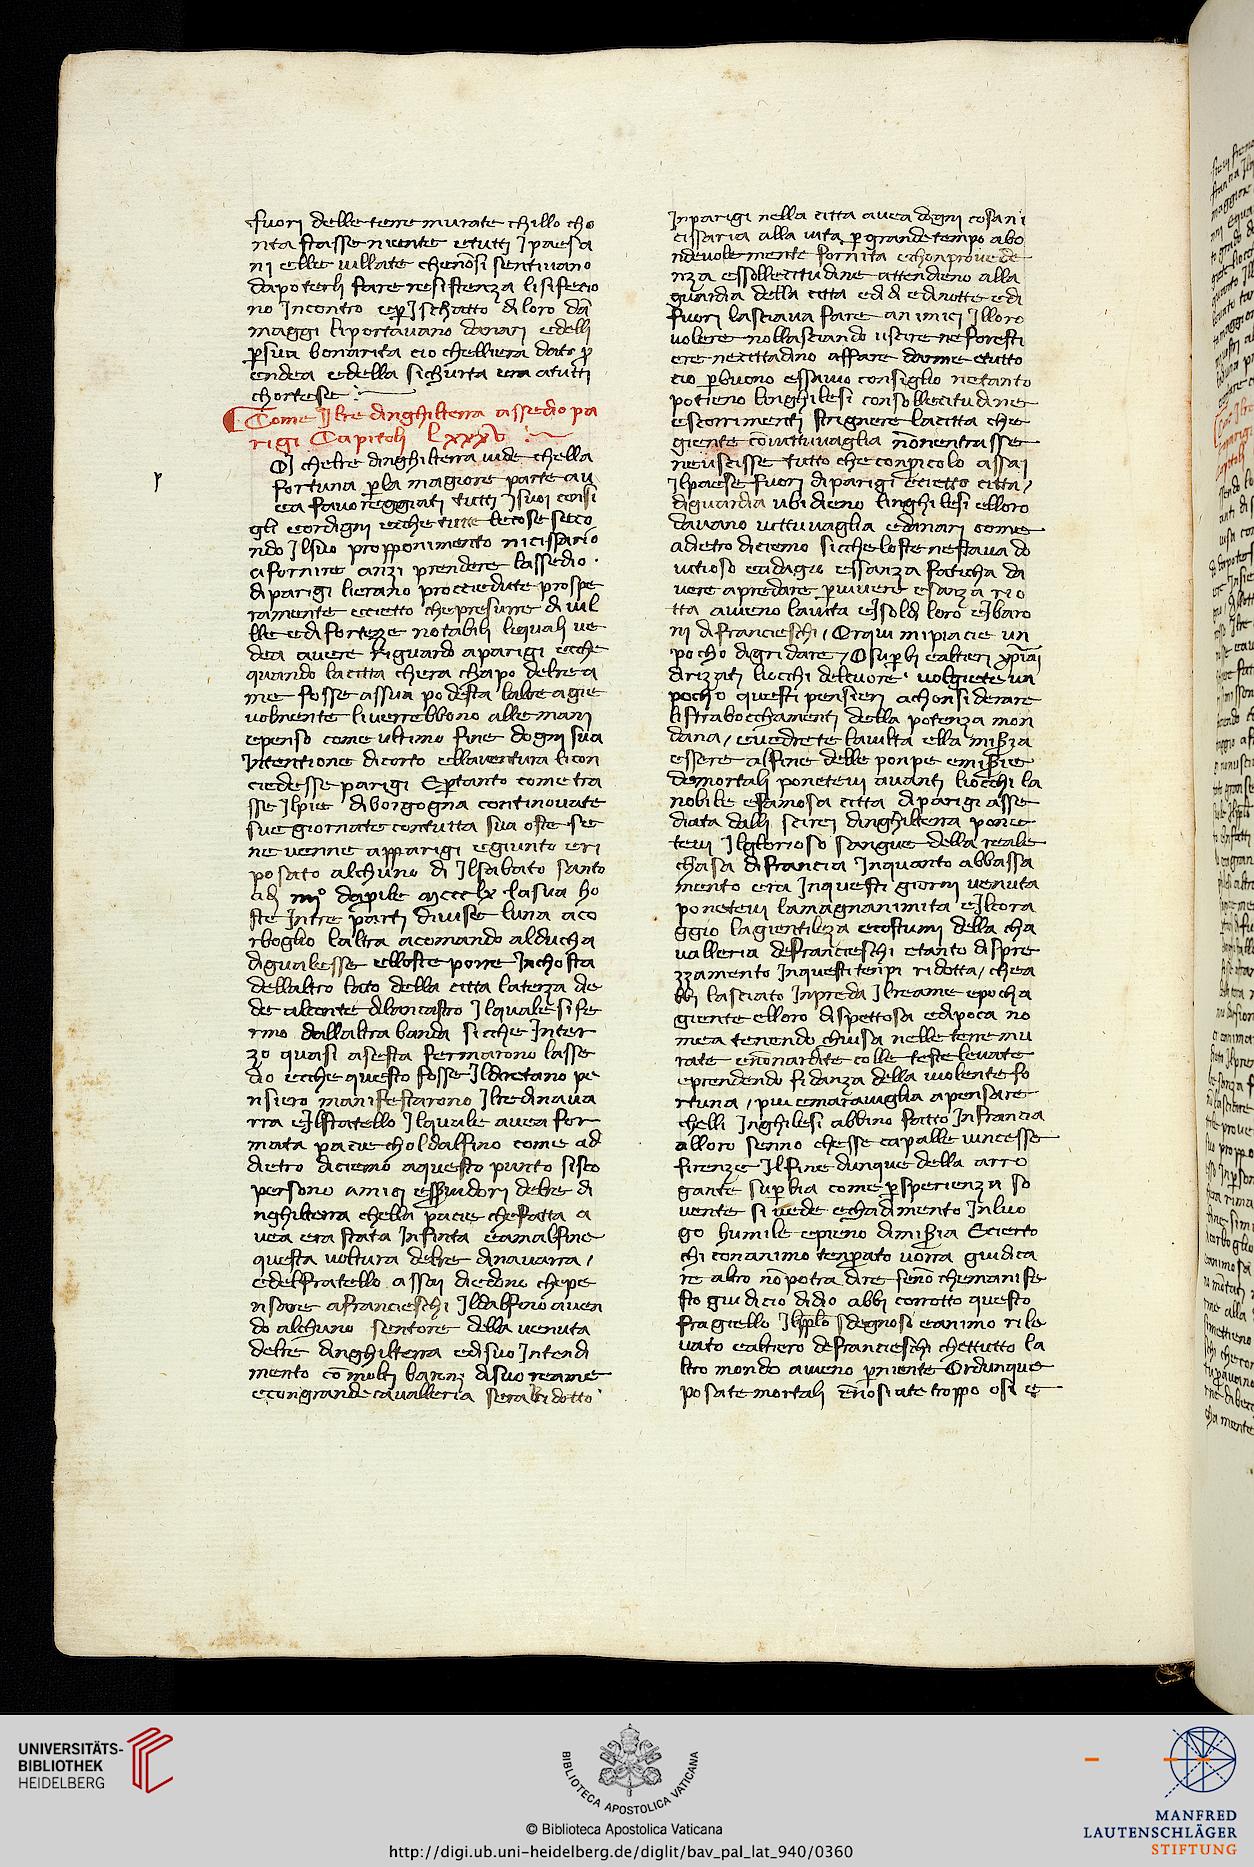 fuori delle terre murate chillo cho
nta stasse niente e tutti J paesa
ni elle villate che nōsi sentivano
da poterli fare resistenza lisifecio
no Incontro
maggi li portavano danari edelli
sua bonarita cio chelliera dato p
endea edella sichurta era atutti
chortese
Come Jlre dinghilterra assedio pa
rigi Capitoli lxxxv
chelre dinghilterra vide chella
fortuna pla magiore parte av
ea favoreggiati tutti Jsuoi consi
gli eordigni ecche tutte lecose seco
ndo Jlsuo propponimento nicissario
a fornire anzi prendere lassedio
di parigi lierano proccedute prospe
ramente eccietto chepresurre di vil
lle edi fortezze notabili liquali ve
dea avere Riguardo aparigi ecche
quando lacitta chera chapo delrea
me fosse assua podesta laltre agie
volmente liverrebbono alle mani
epenso come ultimo fine dogni sua
Intentione dicorto ellaventura licon
ciedesse parigi Eptanto come tra
sse Jlpie diborgogna continovate
sue giornate contutta sua oste se
ne venne apparigi egiunto eri
posato alchuno di Jlsabato santo
adi iiijº daprile mccclx lasua ho
ste Intre parti divise luna aco
rboglio laltra acomando alducha
digualesse elloste porre Inchosta
dellaltro lato della citta laterza die
de alconte dilancastro Jlquale si fe
rmo dallaltra banda sicche Inter
zo quasi asesta fermarono lasse
dio ecche questo fosse Jldiretano pe
nsiero manifestarono Jlredinava
rra eJlfratello Jlquale avea fer
mata pacie choldalfino come ad
dietro diciemo aquesto punto sisco
persono amici esservidori delre di
nghilterra chella pacie chefatta a
vea era stata Infinta eamalfine
questa voltura delre dinavarra /
edelfratello assai diedono chepe
nsare afrancieschi Jldalfino aven
do alchuno sentore della venuta
delre dinghilterra edisuo Intendi
mento cō molti baroni disuo reame
econgrande cavalleria sera Ridotto
Inparigi nella citta avea dogni cosa ni
cissaria alla vita p grande tempo abo
ndevolemente fornita echonprovede
nza essollecitudine attendieno alla
guardia della citta edi di edinotte edi
fuori lasciava fare animici Jlloro
volere nollasciando uscire ne foresti
ere necittadino affare darme etutto
cio pbuono essavio consiglio netanto
potieno linghilesi consollecitudine
escorrimenti strignere lacitta che
giente covittuvaglia nōnentrasse
neuscisse tutto checonpicolo assai
Jlpaese fuori di parigi eccietto citta /
diguardia ubidieno linghilesi elloro
davano vittuvaglia edanari come
adietro diciemo sicche loste nestava do
vitioso eadagio essanza faticha da
vere apredare pvivere esanza rio
tta avieno lavita eJsoldi loro eJbaro
ni difrancieschi / Orqui mipiacie un
pocho digridare / Osuperbi ealtieri xpiāi
dirizati liocchi delcuore volgiete un
pocho questi pensieri achonsiderare
listrabocchamenti della potenza mon
dana / evedrete lavilta ella mißia
essere alfine delle ponpe emißie
demortali ponetevi avanti liocchi la
nobile efamosa citta diparigi asse
diata dalli scirei dinghilterra pone
tevi Jlglorioso sangue della reale
chasa difrancia Inquanto abbassa
mento era Inquesti giorni venuta
ponetevi lamagnanimita eJlcora
ggio lagientileza ecostumi della cha
valleria defrancieschi etanto dispre
zzamento Inquesti tenpi ridotta / chea
bbi lasciato Inpreda Jlreame epocha
giente elloro dispettosa edipoca no
mea tenendo chiusa nelle terre mu
rate enōnardite colle teste levate
eprendendo fidanza della violente fo
rtuna / piu emaraviglia apensare
chelli Inghilesi abbino fatto Infrancia
alloro senno chesse capalle vincesse
firenze Jlfine dunque della arro
gante suprbia come psperienza so
vente si vede echadimento Inluo
go humile epieno dimißia Ecierto
chi conanimo tenprato vorra giudica
re altro nōpotra dire senō chemanife
sto giudicio didio abbi corrotto questo
fragiello sdegnosi eanimo rile
vato ealtiero defrancieschi chettutto la
ltro mondo avieno pniente Ordunque
posate mortali enōsiate troppo osi e
UNIVERSITÄTS-
BIBLIOTHEK
HEIDELBERG
BIBLIOTECA APOSTOLICA VATICANA
© Biblioteca Apostolica Vaticana
http://digi.ub.uni-heidelberg.de/diglit/bav_pal_lat_940/0360
MANFRED
LAUTENSCHLÄGER
STIFTUNG